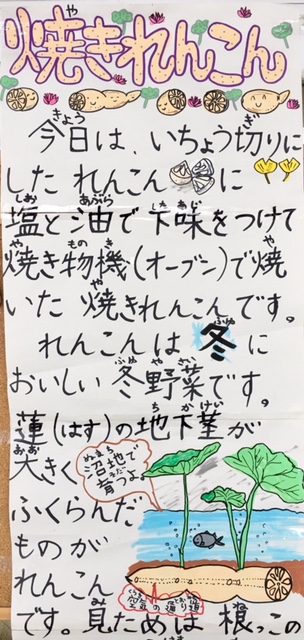 焼きれんこん
今日は、いちょう切りに
した れんこん に
塩と油で下味をつけて
焼き物機(オーブン)で焼
いた 焼きれんこんです。
れんこんは 冬 に
おいしい 冬野菜です。
蓮(はす)の地下茎が
大きく
ふくらんだ
ものが
れんこん
です。見ためは 根っこの
沼地で
育つよ。
空気の通り道